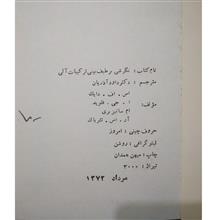 نام کتاب: نگرشی بر طیف بینی ترکیبات آلی
مترجم: دکتر داد آذریان
مؤلف:
اس. اف. دایک
ا. جی. فلوید
ام سانزبری
آر. اس. تئوبالد
حروف چینی: امروز
لیتوگرافی: روشن
چاپ: میهن همدان
تیراژ: ۳۰۰۰
مرداد ۱۳۷۲